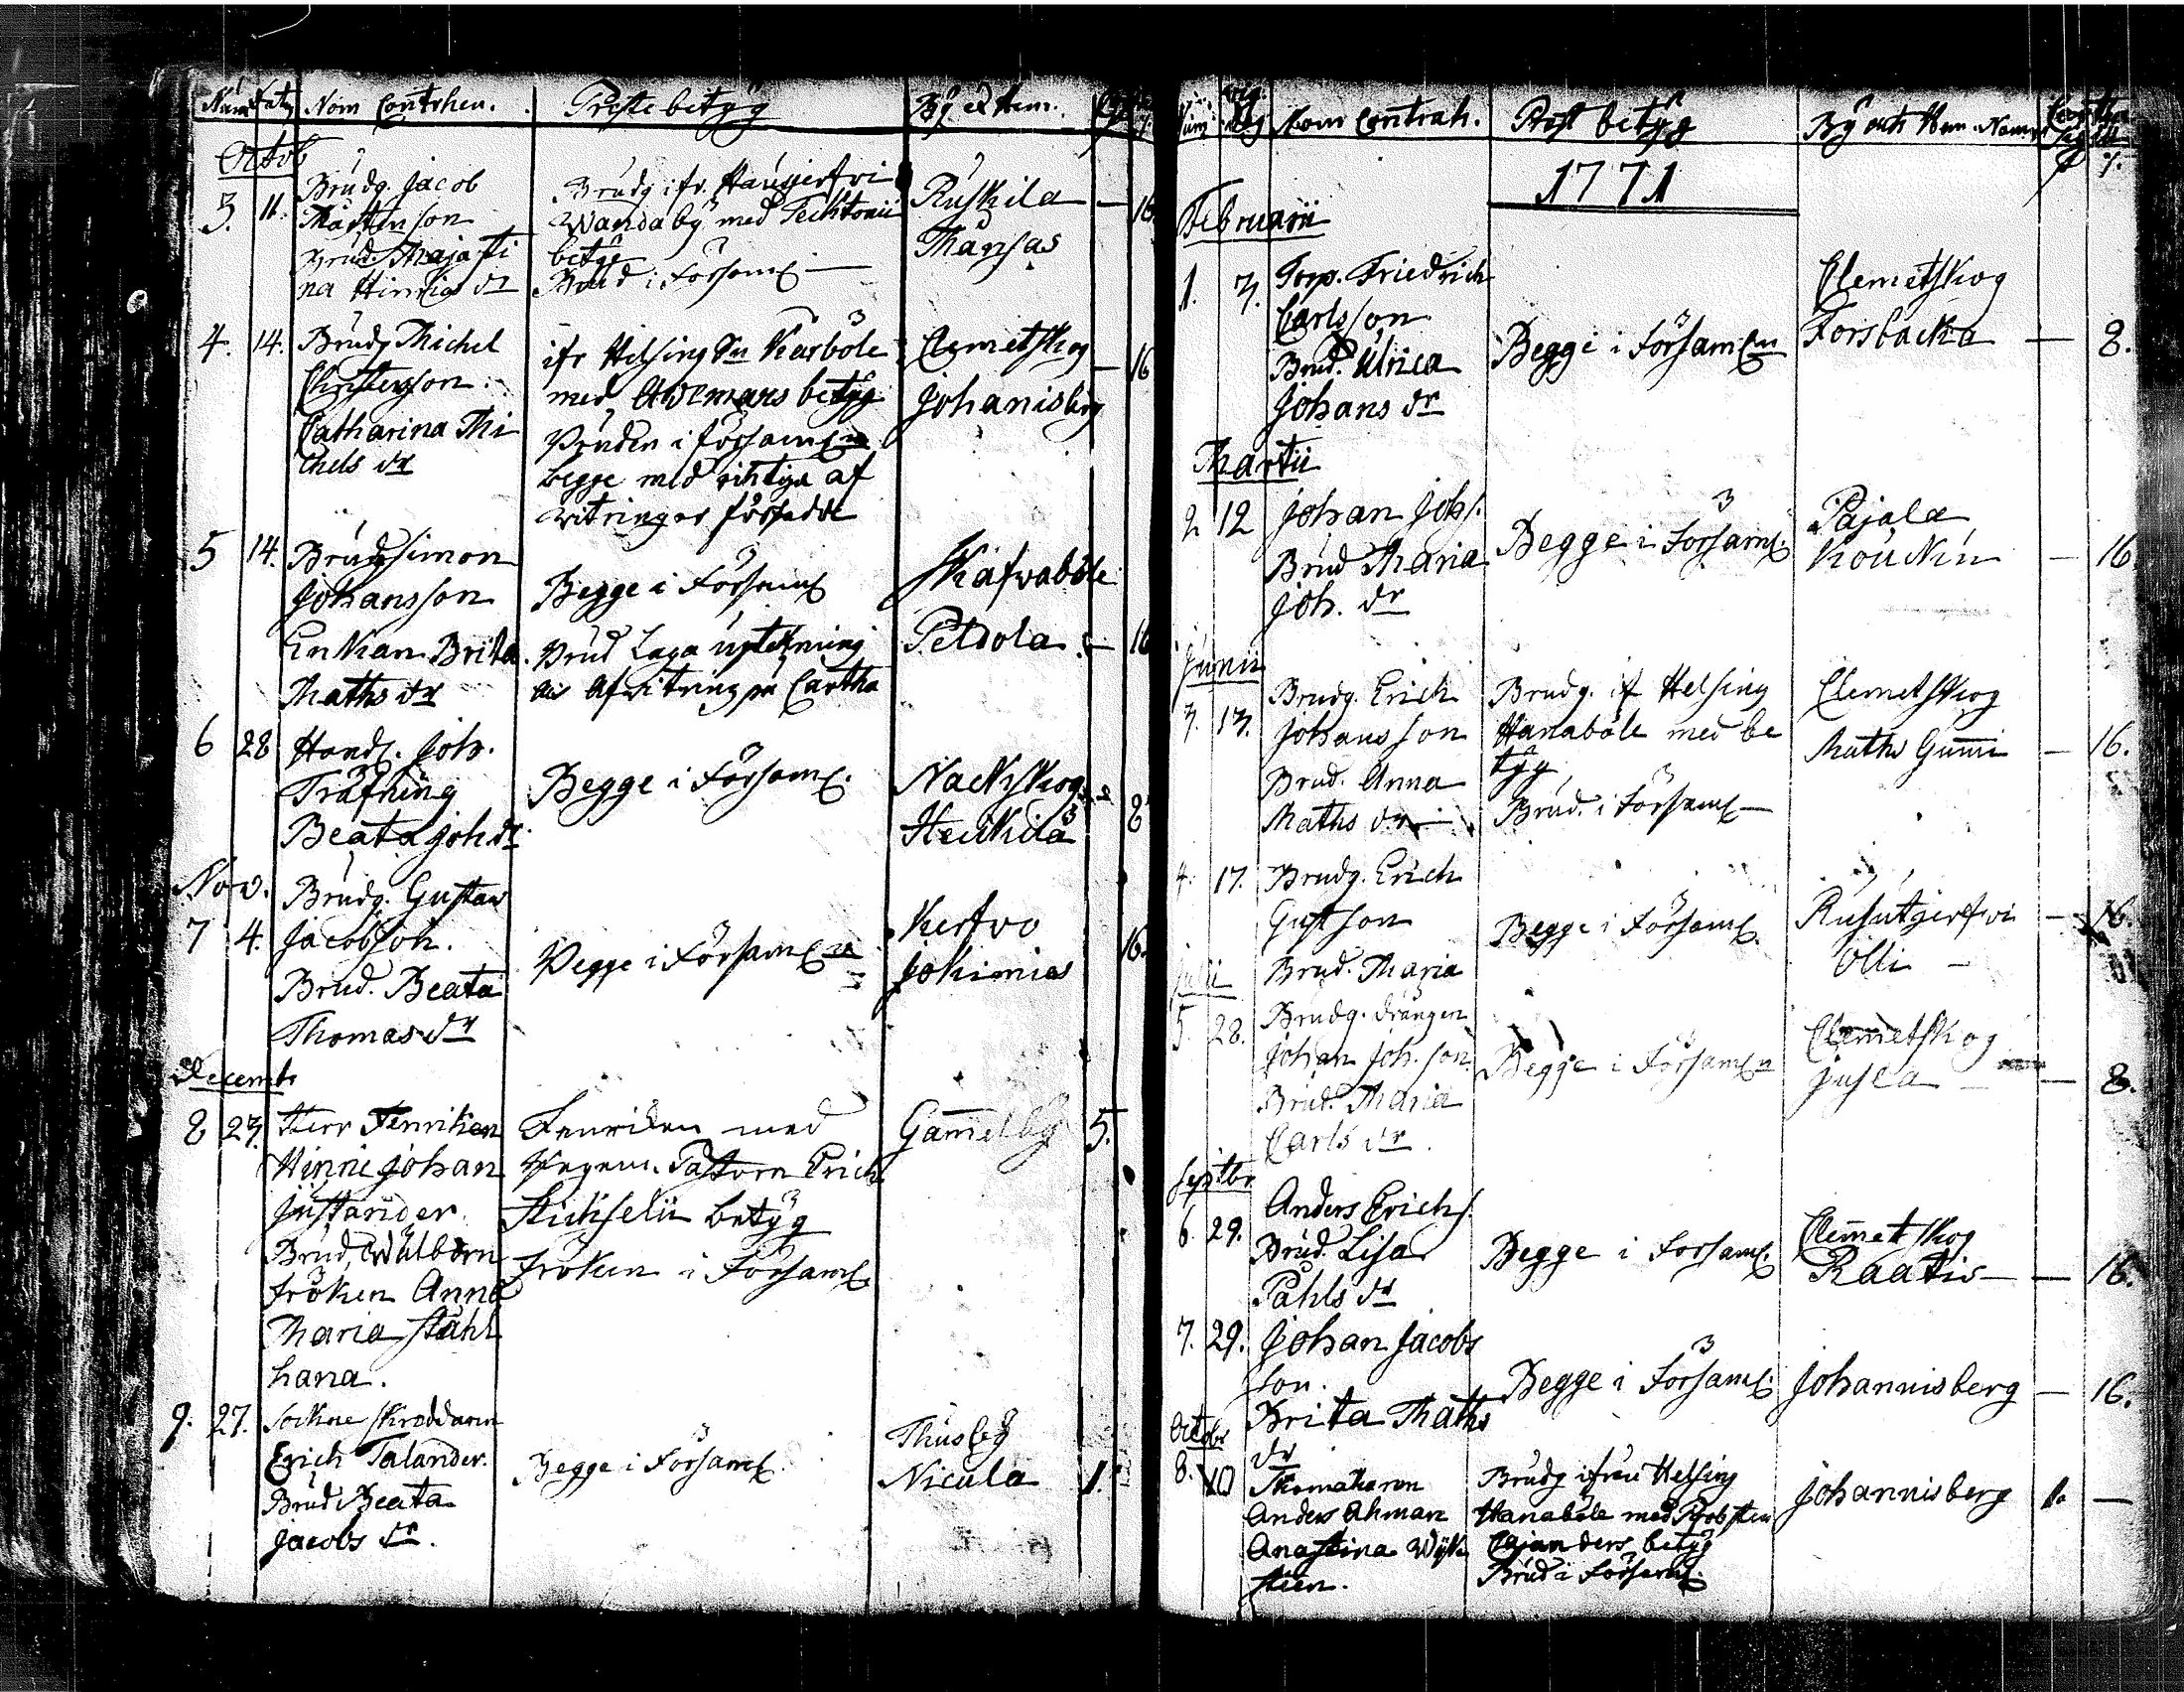 Num Dat Nom Contrhen. Preste betÿg Bÿ et Hem.
Octob
3. 11. Brudg. Jacob
Mårtenson
Brud. Maja Sti
na Hinrics dr
Brudg. ifr. Haugierfwi
Wandabÿ med
betÿg
Brud i Församl
Ruskila
Månsas
16
4. 14. Brudg Michel
Christersson
Catharina Mi
chels dr
ifr Helsing Sn Kårböle
med Awemans betÿg
Bruden i församln
begge med riktiga af
witringar försedde
Clemetskog
Johanisberg
16
5 14. Brudg Simon
Johansson
Enkan Brita
Maths dr
Begge i Församl
Brud Laga upteckning
Skafwaböle
Peldola
16
6 28 Handl. Joh.
Träfning
Beata Joh dr
Begge i Församl.
Nackskog
Heikkilä
8
Nov.
7 4. Brudg. Gustav
Jacobson.
Brud. Beata
Thomas dr
Begge i Församln
Kerfvo
Jokimies
16.
Decembr
8 27. Herr Fenriken
Hinric Johan
Justander
Brud, Wälborn
Fröken Anna
Maria Ståhl
hana.
Fenriken med
Regem. Pastorn Erich
betÿg
Fröken i Församl
Gam̄elbÿ
5.
9. 27. Sockne Skräddarn
Erich Talander.
Brud Beata
Jacobs dr.
Begge i Församl.
Thusbÿ
Nicula
1.
Num Dag Nom Contrah. Prest betÿg Bÿ och Hem. Namn
1771
Februarii
1. 7. Torp. Friedrich
Carlsson
Brud. Ulrica
Johans dr
Begge i Församln
Clemetskog
Forsbacka
8.
Martii
2 12 Johan Johs.
Brud Maria
Joh. dr
Begge i Församl.
Pajala
Koukku
16
Junii
3. 13. Brudg. Erich
Johansson
Brud. Anna
Maths dr
Brudg. if Helsing
Hanaböle med be
tÿg
Brud. i Församl
Clemetskog
Maths Gum̄i
16.
4. 17. Brudg. Erich
Gustson
Brud. Maria
Begge i Församl.
Rusutjerfwi
Olli
16.
Julii
5. 28. Brudg. drängen
Johan Joh. son
Brud. Maria
Carls dr.
Begge i Församln
Clemetskog
Jusla
8.
Septbr
6. 29. Anders Erichs.
Brud. Lisa
Påhls dr
Begge i Församl.
Clem̄etskog
Raatis
16.
7. 29. Johan Jacobs
son.
Brita Maths
dr
Begge i Församl.
Johannisberg
16.
Octobr
8. 10
Anders Ahman
Anastina Wÿk
sten.
Brudg ifrån Helsing
Hanaböle med Probsten
Cajanders betÿg
Brud i Församl.
Johannisberg
1.